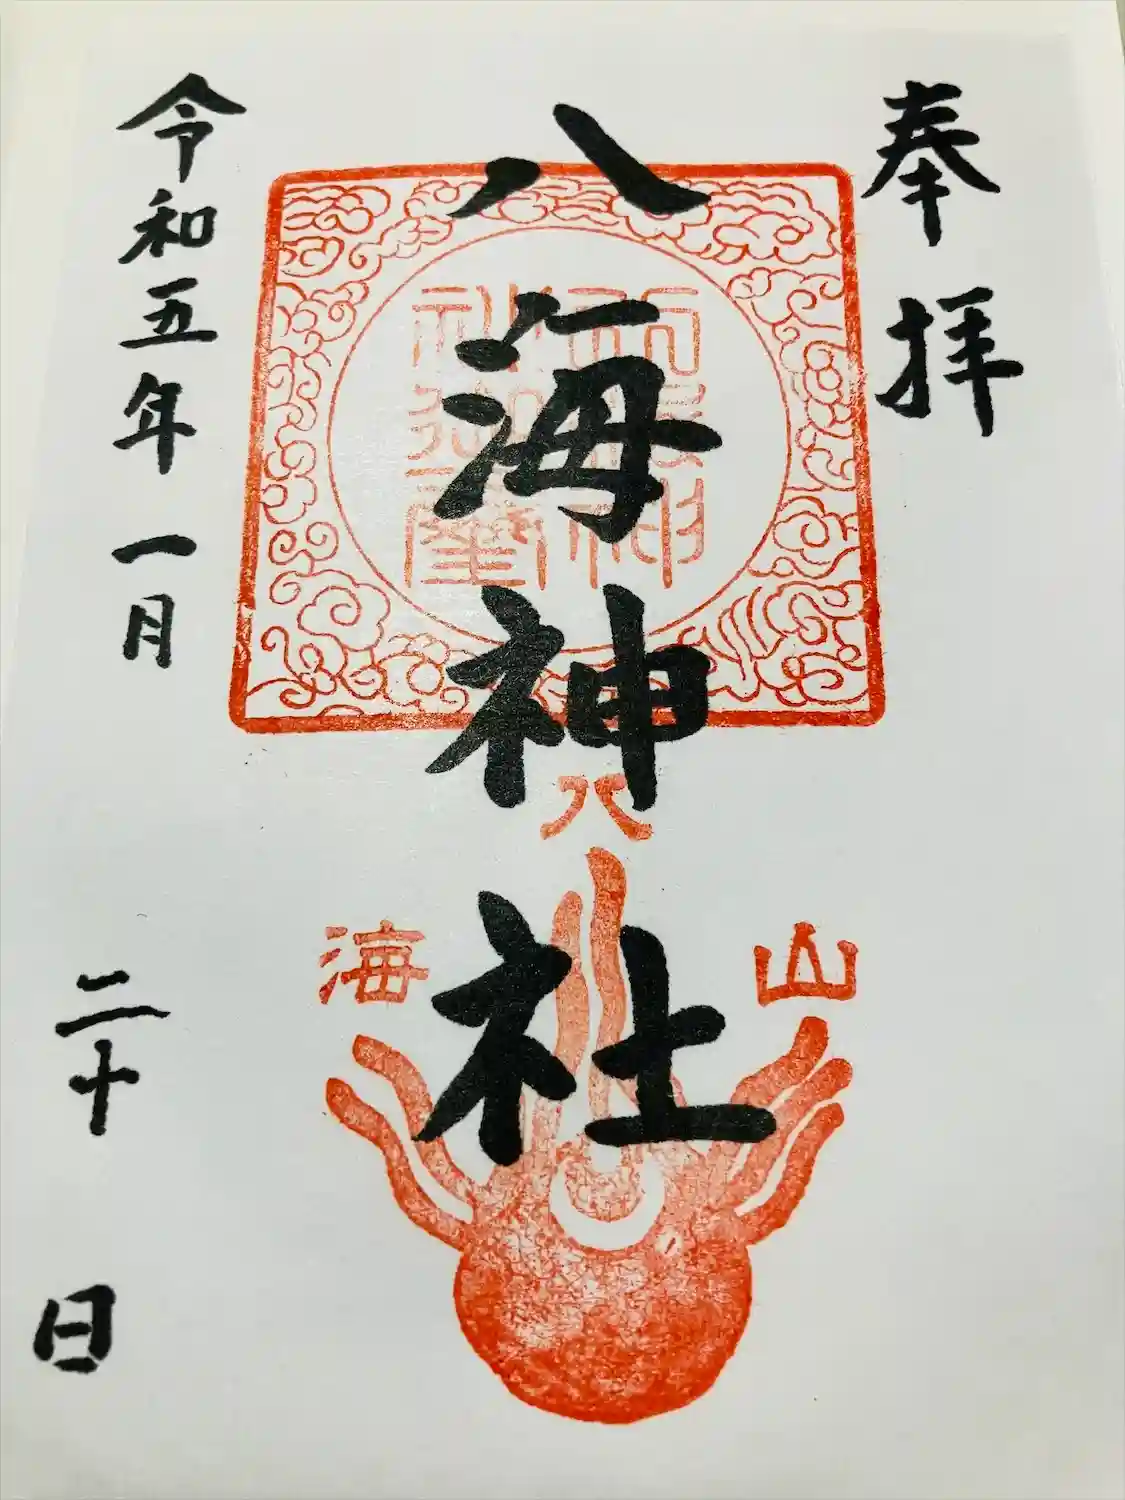 奉拝
八海神社
八
山
海
令和五年一月二十日